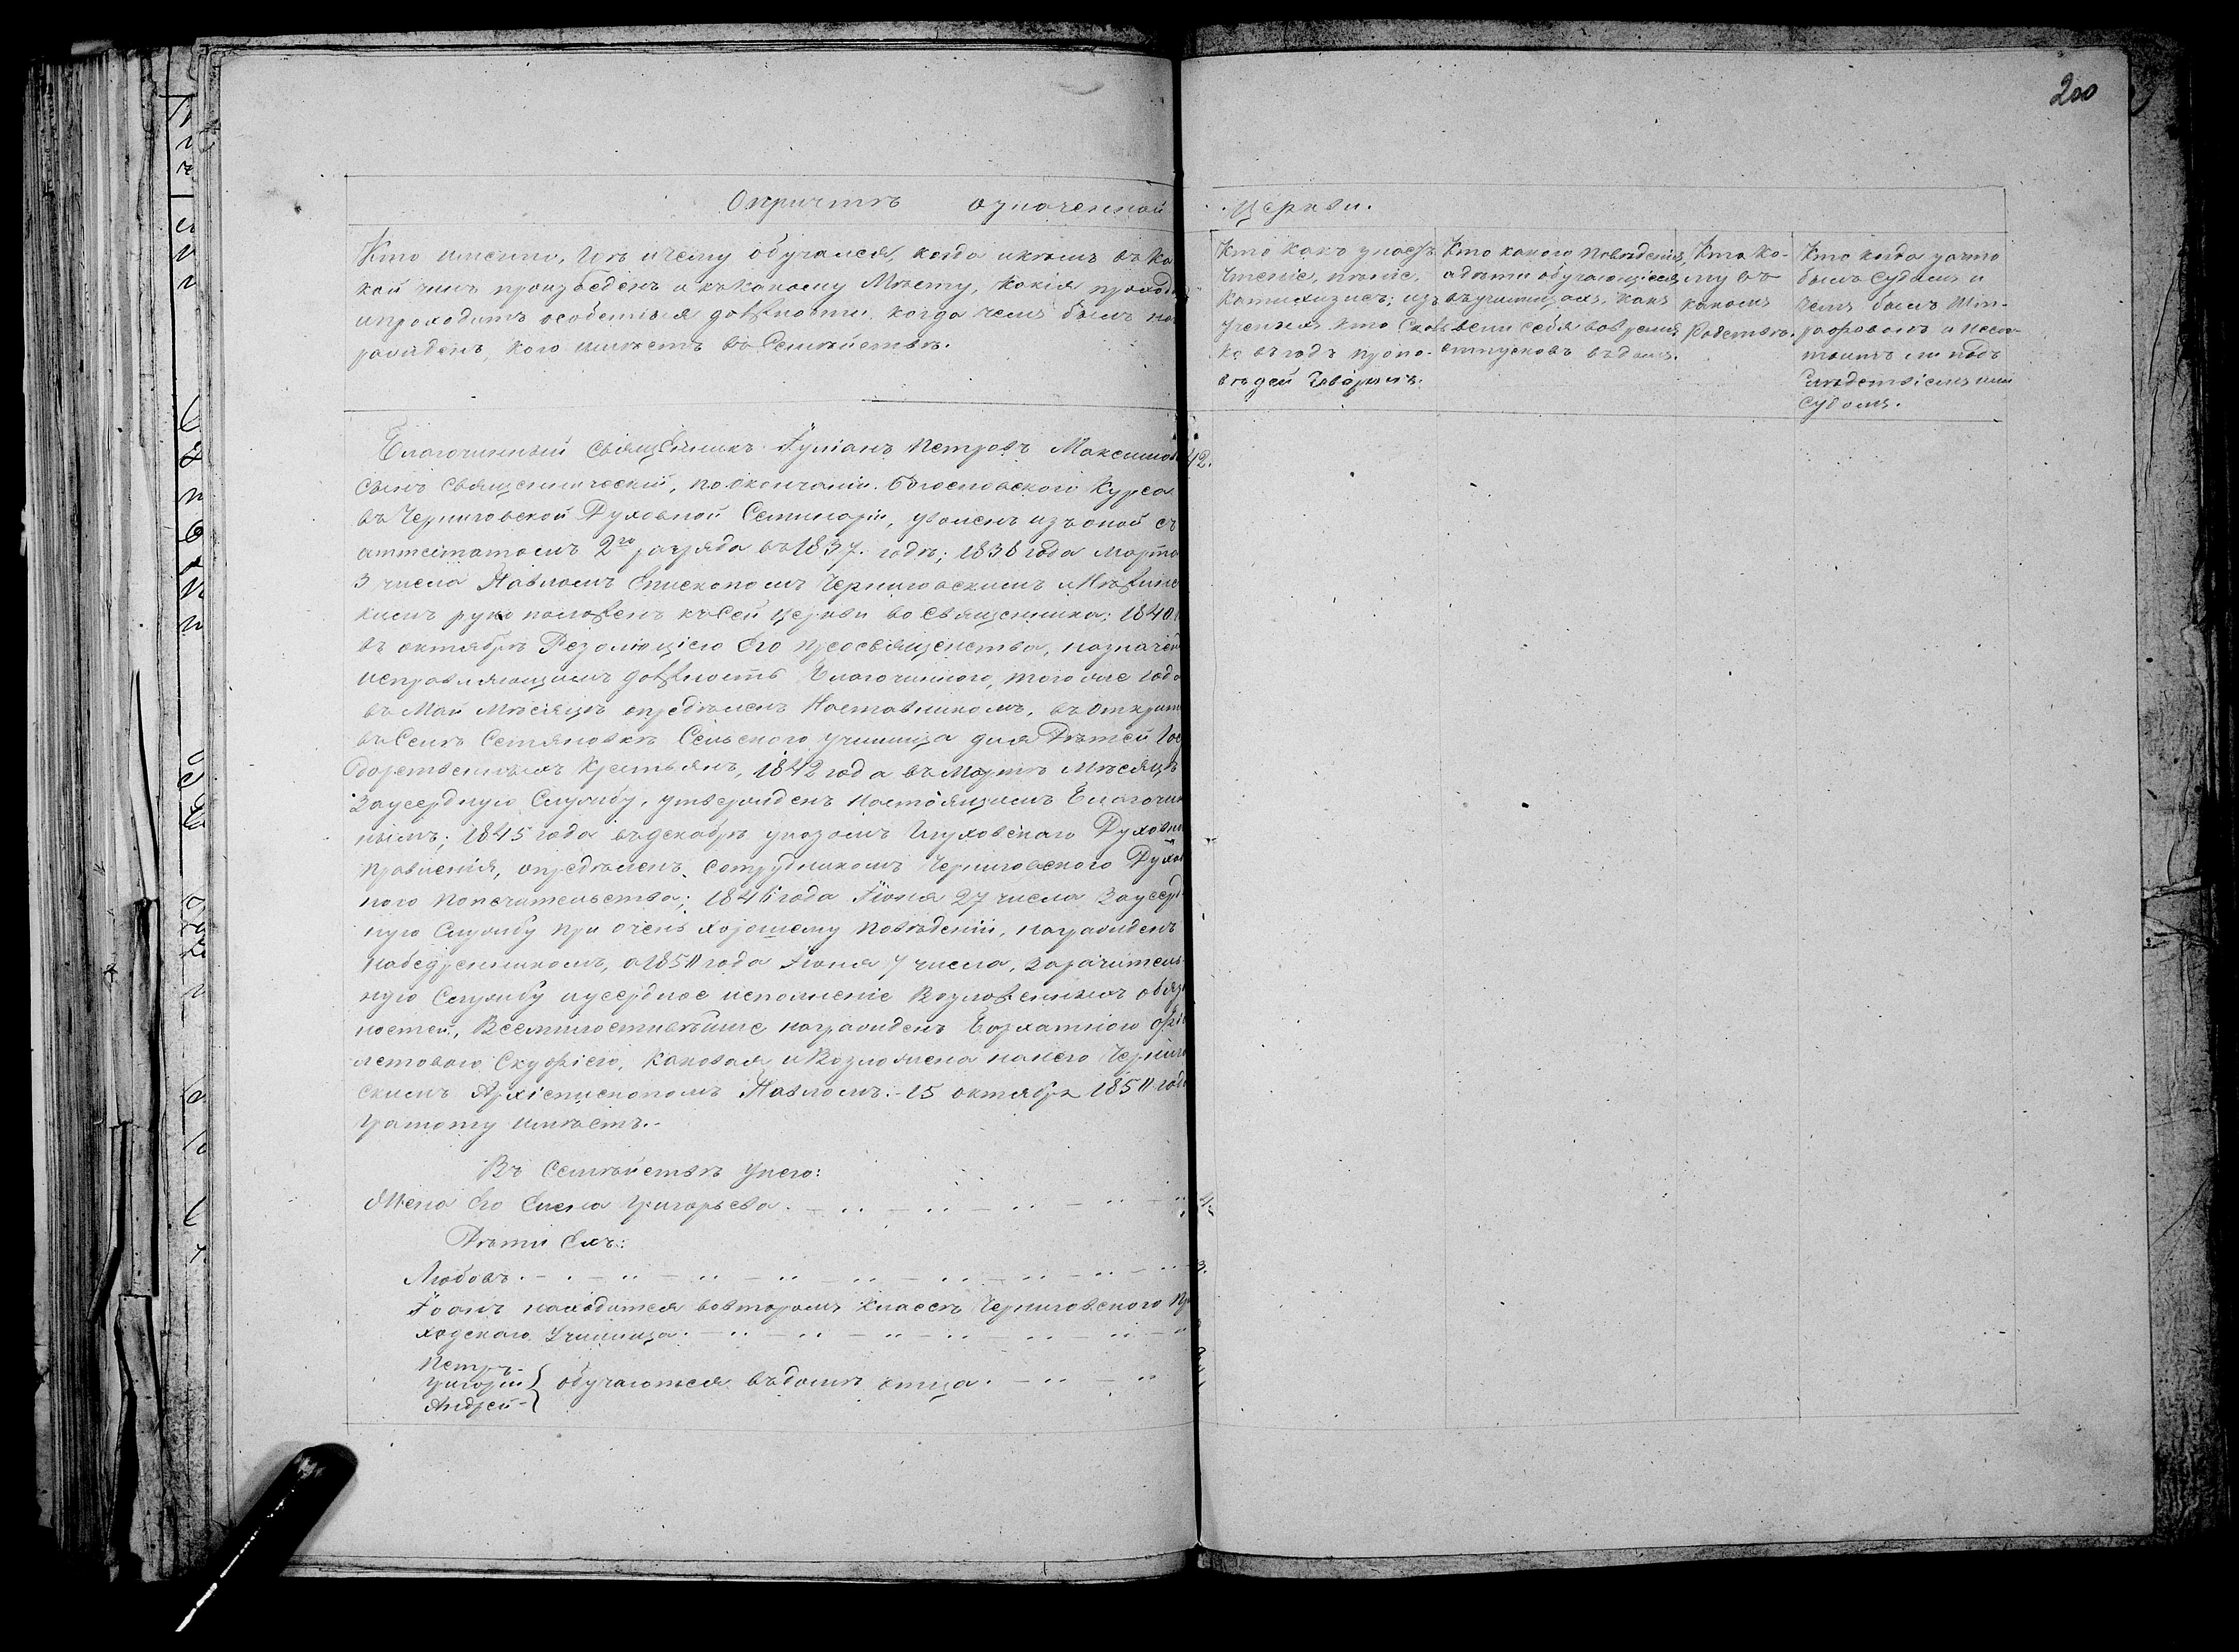 200
О причтѣ означенной церкви.
Кто именно, гдѣ и чему обучался, когда и кѣмъ въ ка
кой чинъ произведенъ и къ какому мѣсту, какія проход
и проходитъ особенныя должности когда чемъ былъ на
ражденъ, кого имѣетъ въ Семѣйствѣ.
Кто какъ знаетъ
чтеніе, пѣніе,
катихизисъ; изъ
ученыхъ кто сколь
ко въ годъ пропо-
вѣдей говоритъ.
Кто какого поведенія,
а дѣти обучающіеся
въ училищахъ, какъ
вели себя во время
отпусковъ въ домъ.
Кто ко-
му въ
какомъ
родствѣ.
Кто когда за что
былъ судимъ и
чемъ былъ Шт-
рафованъ и не со-
тоитъ ли подъ
Слѣдствіемъ или
Судомъ.
Благочинный Священникъ Іуліанъ Петровъ Максимов
сынъ священническій, по окончаніи Богословского Курса
въ Черниговской Духовной Семинаріи, уволенъ изъ оной съ
аттестатомъ 2го разряда въ 1837. годѣ; 1838 года марта
3 числа Павломъ Епископомъ Черниговскимъ и Нѣжинс
кимъ рукоположенъ къ сей Церкви во Священника; 1840
въ октябрѣ Резолюціею Его Преосвященства, назначен
исправляющимъ должность Благочинного, того же года
въ Маи мѣсяцѣ опредѣленъ Наставникомъ, въ открыт
въ Селѣ Сетяновкѣ Сельского училища для Дѣтей Гос
дарственныхъ Крестьянъ, 1842 года въ Мартѣ мѣсяцѣ
За усердную Службу, утвержденъ настоящимъ Благочин
нымъ; 1845 года въ декабрѣ указомъ Глуховскаго Духовн
правленія, опредѣленъ сотрудникомъ Черниговского Духов
ного Попечительства; 1846 года Іюня 27 числа За усерд
ную Службу при очень хорошему поведеніи, награжденъ
набедренникомъ, а 1851 года Іюня 7 числа, За рачитель-
ную Службу и усердное исполненіе Возложенныхъ обяз
ностей, Всемилостивѣйше награжденъ Бархатною фіо
летовою Скуфіею, каковая и Возложена на него Черниго
скимъ Архіепископомъ Павломъ.- 15 октября 1851 года
грамоту имѣетъ.-
42.
Въ Семѣйствѣ у него:
Жена Его Елена Григорьева.
Дѣти Ихъ:
Любовь.
Іоанъ находится во второмъ классѣ Черниговского Пр
ходского Училища.
Петръ-
Григорій
Андрей-
обучаются въ домѣ отца.